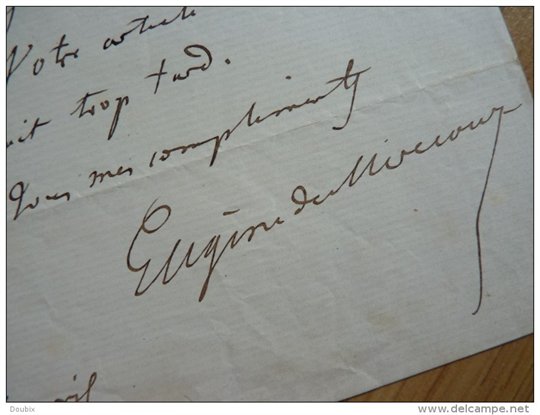 Votre article
trop tard.
Tous mes compliments
Eugène de Mirecourt
Doubix
www.delcampe.net